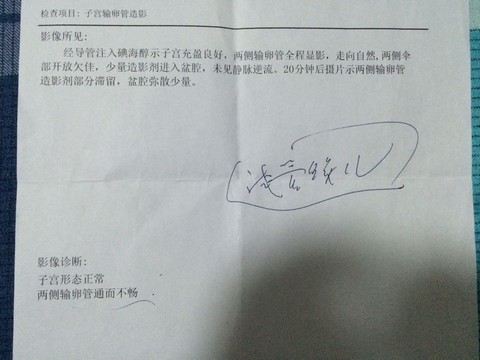 检查项目: 子宫输卵管造影
影像所见:
经导管注入碘海醇示子宫充盈良好, 两侧输卵管全程显影, 走向自然, 两侧伞
部开放欠佳, 少量造影剂进入盆腔, 未见静脉逆流。20分钟后摄片示两侧输卵管
造影剂部分滞留, 盆腔弥散少量。
影像诊断:
子宫形态正常
两侧输卵管通而不畅